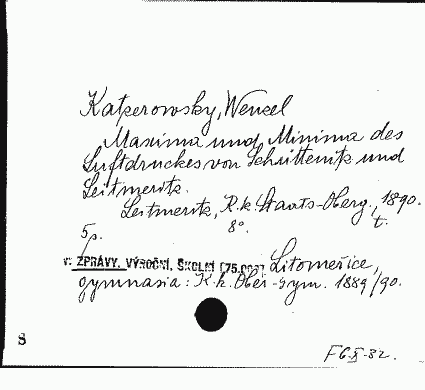 Katzerowsky, Wenzel
Maxima und Minima des
Luftdruckes von Schüttenitz und
Leitmeritz.
Leitmeritz, K. k. Staats-Oberg., 1890.
8°. t.
5 p.
v: ZPRÁVY, VÝROČNÍ, ŠKOLNÍ [75.003], Litoměřice,
gymnasia: K. k. Ober-Gym. 1889/90.
S
F6-X-32.